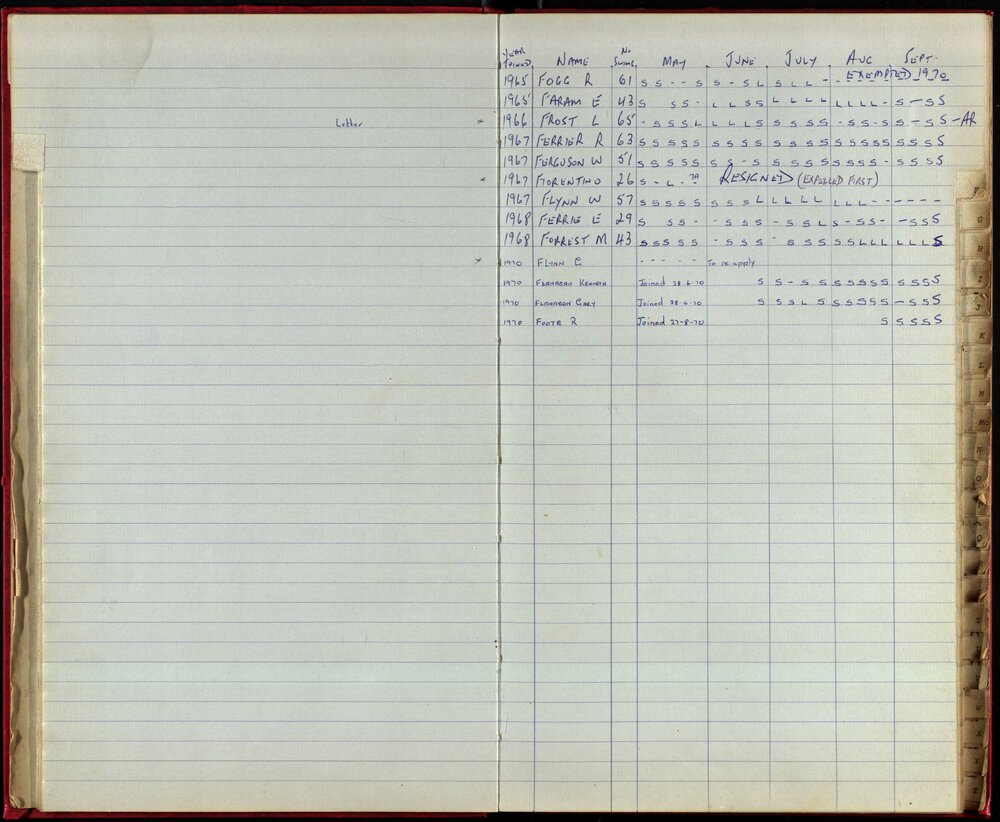 YEAR JOINED NAME No SWIMS MAY JUNE JULY AUG SEPT.
1965 FOGG R 61 S S - - S S - S L S L L - EXEMPTED 1970
1965 FARAM E 43 S S S - L L S S L L L L L L L L - S - S S
Letter * 1966 FROST L 65 - S S S L L L L S S S S S - S S - S S - S S - AR
1967 FERRIER R 63 S S S S S S S S S S S S S S S S S S S S S S
1967 FERGUSON W 51 S S S S S S S - S S S S S S S S S - S S S S
* 1967 FIORENTINO 26 S - L - RESIGNED (EXPELLED FIRST)
1967 FLYNN W 57 S S S S S S S S L L L L L L L L - - - - - -
1968 FERRIE E 29 S S S - - S S S - S S L S - S S - - S S S
1968 FORREST M 43 S S S S S - S S S - S S S S S L L L L L L S
1970 FLYNN G - - - - - To re apply
1970 FLANAGAN KENNETH Joined 28-6-70 S S - S S S S S S S S S S S
1970 FLANAGAN GARY Joined 28-6-70 S S S L S S S S S S - S S S
1970 FOOTE R Joined 27-8-70 S S S S S
F
G
H
I
J
K
L
M
Mc
N
O
P
X
Y
Z